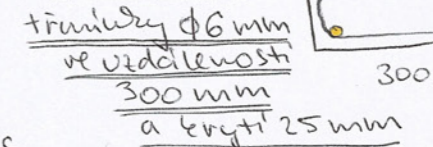 třmínky ϕ6 mm
ve vzdálenosti
300 mm
300
a krytí 25 mm